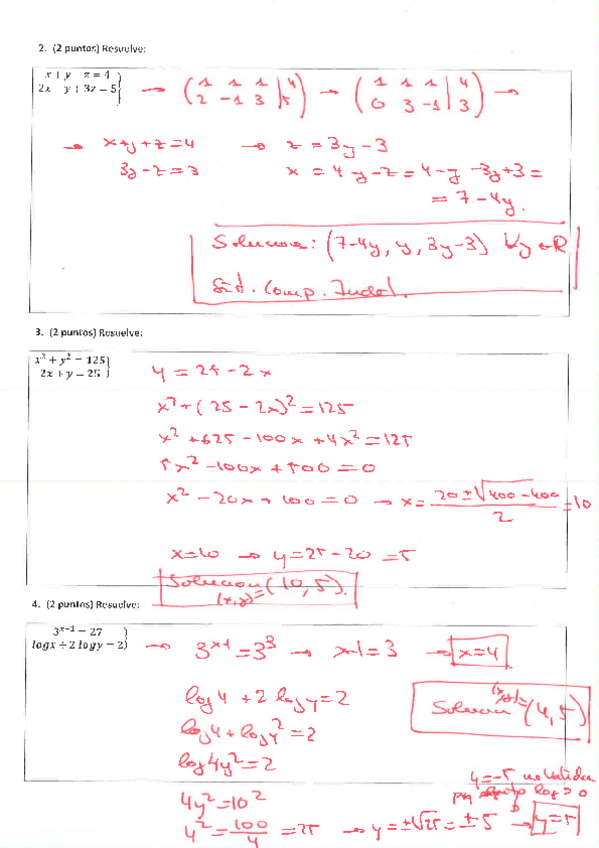 2. (2 puntos) Resuelve:
x + y z = 4
2x y + 3z = 5 }
→ ( 1 1 1 | 4 → ( 1 1 1 | 4 →
2 -1 3 | 5 ) 0 3 -1 | 3 )
→ x+y+z=4 → z = 3y-3
3y-z=3 x = 4-y-z = 4-y-3y+3 =
= 7-4y.
Solucion: (7-4y, y, 3y-3) ∀y∈R
Sist. Comp. Indet.
3. (2 puntos) Resuelve:
x² + y² = 125
2x + y = 25 }
y = 25-2x
x²+(25-2x)²=125
x²+625-100x+4x²=125
5x²-100x+500=0
x²-20x+100=0 → x= 20±√400-400 / 2 =10
x=10 → y=25-20=5
Solucion (10,5).
(x,y)=
4. (2 puntos) Resuelve:
3^(x-1) = 27
logx + 2 logy = 2 }
→ 3^(x-1) = 3³ → x-1=3 → x=4
log4 + 2 logy=2
(x,y)=
Solucion (4,5)
log4+logy²=2
log4y²=2
4y²=10²
y=-5 no valida
log > 0
y²= 100/4 =25 → y=±√25=±5 → y=5